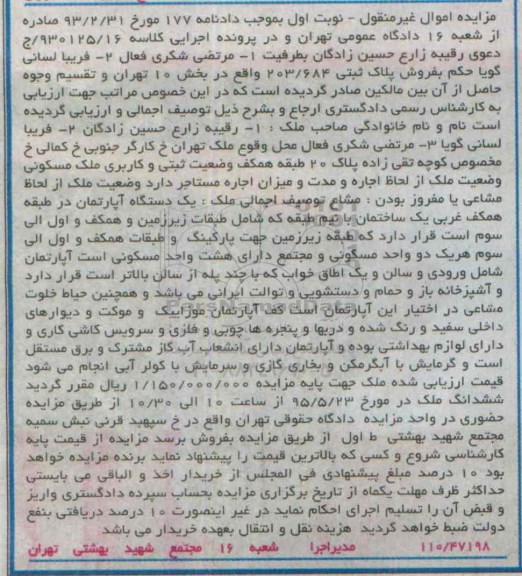 مزایده اموال غیرمنقول - نوبت اول بموجب دادنامه ۱۷۷ مورخ ۹۳/۲/۳۱ صادره
از شعبه ۱۶ دادگاه عمومی تهران و در پرونده اجرایی کلاسه ۹۳۰۱۲۵/۱۶/ج
دعوی رقیبه زارع حسین زادگان بطرفیت ۱- مرتضی شکری فعال ۲- فریبا لسانی
گویا حکم بفروش پلاک ثبتی ۲۰۳/۶۸۴ واقع در بخش ۱۰ تهران و تقسیم وجوه
حاصل از آن بین مالکین صادر گردیده است که در این خصوص مراتب جهت ارزیابی
به کارشناس رسمی دادگستری ارجاع و بشرح ذیل توصیف اجمالی و ارزیابی گردیده
است نام و نام خانوادگی صاحب ملک : ۱- رقیبه زارع حسین زادگان ۲- فریبا
لسانی گویا ۳- مرتضی شکری فعال محل وقوع ملک تهران خ کارگر جنوبی خ کمالی خ
مخصوص کوچه تقی زاده پلاک ۲۰ طبقه همکف وضعیت ثبتی و کاربری ملک مسکونی
وضعیت ملک از لحاظ اجاره و مدت و میزان اجاره مستاجر دارد وضعیت ملک از لحاظ
مشاعی یا مفروز بودن : مشاع توصیف اجمالی ملک : یک دستگاه آپارتمان در طبقه
همکف غربی یک ساختمان با نیم طبقه که شامل طبقات زیرزمین و همکف و اول الی
سوم است قرار دارد که طبقه زیرزمین جهت پارکینگ و طبقات همکف و اول الی
سوم هریک دو واحد مسکونی و مجتمع دارای هشت واحد مسکونی است آپارتمان
شامل ورودی و سالن و یک اطاق خواب که با چند پله از سالن بالاتر است قرار دارد
و آشپزخانه باز و حمام و دستشویی و توالت ایرانی می باشد و همچنین حیاط خلوت
مشاعی در اختیار این آپارتمان است کف آپارتمان موزاییک و موکت و دیوارهای
داخلی سفید و رنگ شده و دربها و پنجره ها چوبی و فلزی و سرویس کاشی کاری و
دارای لوازم بهداشتی بوده و آپارتمان دارای انشعاب آب گاز مشترک و برق مستقل
است و گرمایش با آبگرمکن و بخاری گازی و سرمایش با کولر آبی انجام می شود
قیمت ارزیابی شده ملک جهت پایه مزایده ۱/۱۵۰/۰۰۰/۰۰۰ ریال مقرر گردید
ششدانگ ملک در مورخ ۹۵/۵/۲۳ از ساعت ۱۰ الی ۱۰/۳۰ از طریق مزایده
حضوری در واحد مزایده دادگاه حقوقی تهران واقع در خ سپهبد قرنی نبش سمیه
مجتمع شهید بهشتی ط اول از طریق مزایده بفروش برسد مزایده از قیمت پایه
کارشناسی شروع و کسی که بالاترین قیمت را پیشنهاد نماید برنده مزایده خواهد
بود ۱۰ درصد مبلغ پیشنهادی فی المجلس از خریدار اخذ و الباقی می بایستی
حداکثر ظرف مهلت یکماه از تاریخ برگزاری مزایده بحساب سپرده دادگستری واریز
و قبض آن را تسلیم اجرای احکام نماید در غیر اینصورت ۱۰ درصد دریافتی بنفع
دولت ضبط خواهد گردید هزینه نقل و انتقال بعهده خریدار می باشد
۱۱۰/۴۷۱۹۸ مدیراجرا شعبه ۱۶ مجتمع شهید بهشتی تهران